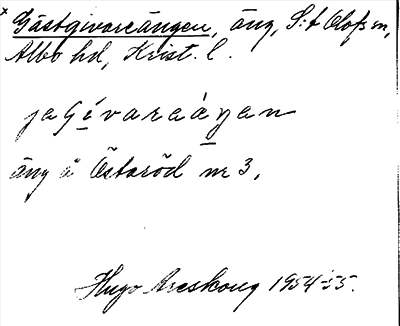 x Gästgivareängen, äng, S:t Olofs sn,
Albo hd, Krist. l.
jaGivaraáŋan
äng å Östaröd nr 3.
Hugo Areskoug 1954-55.